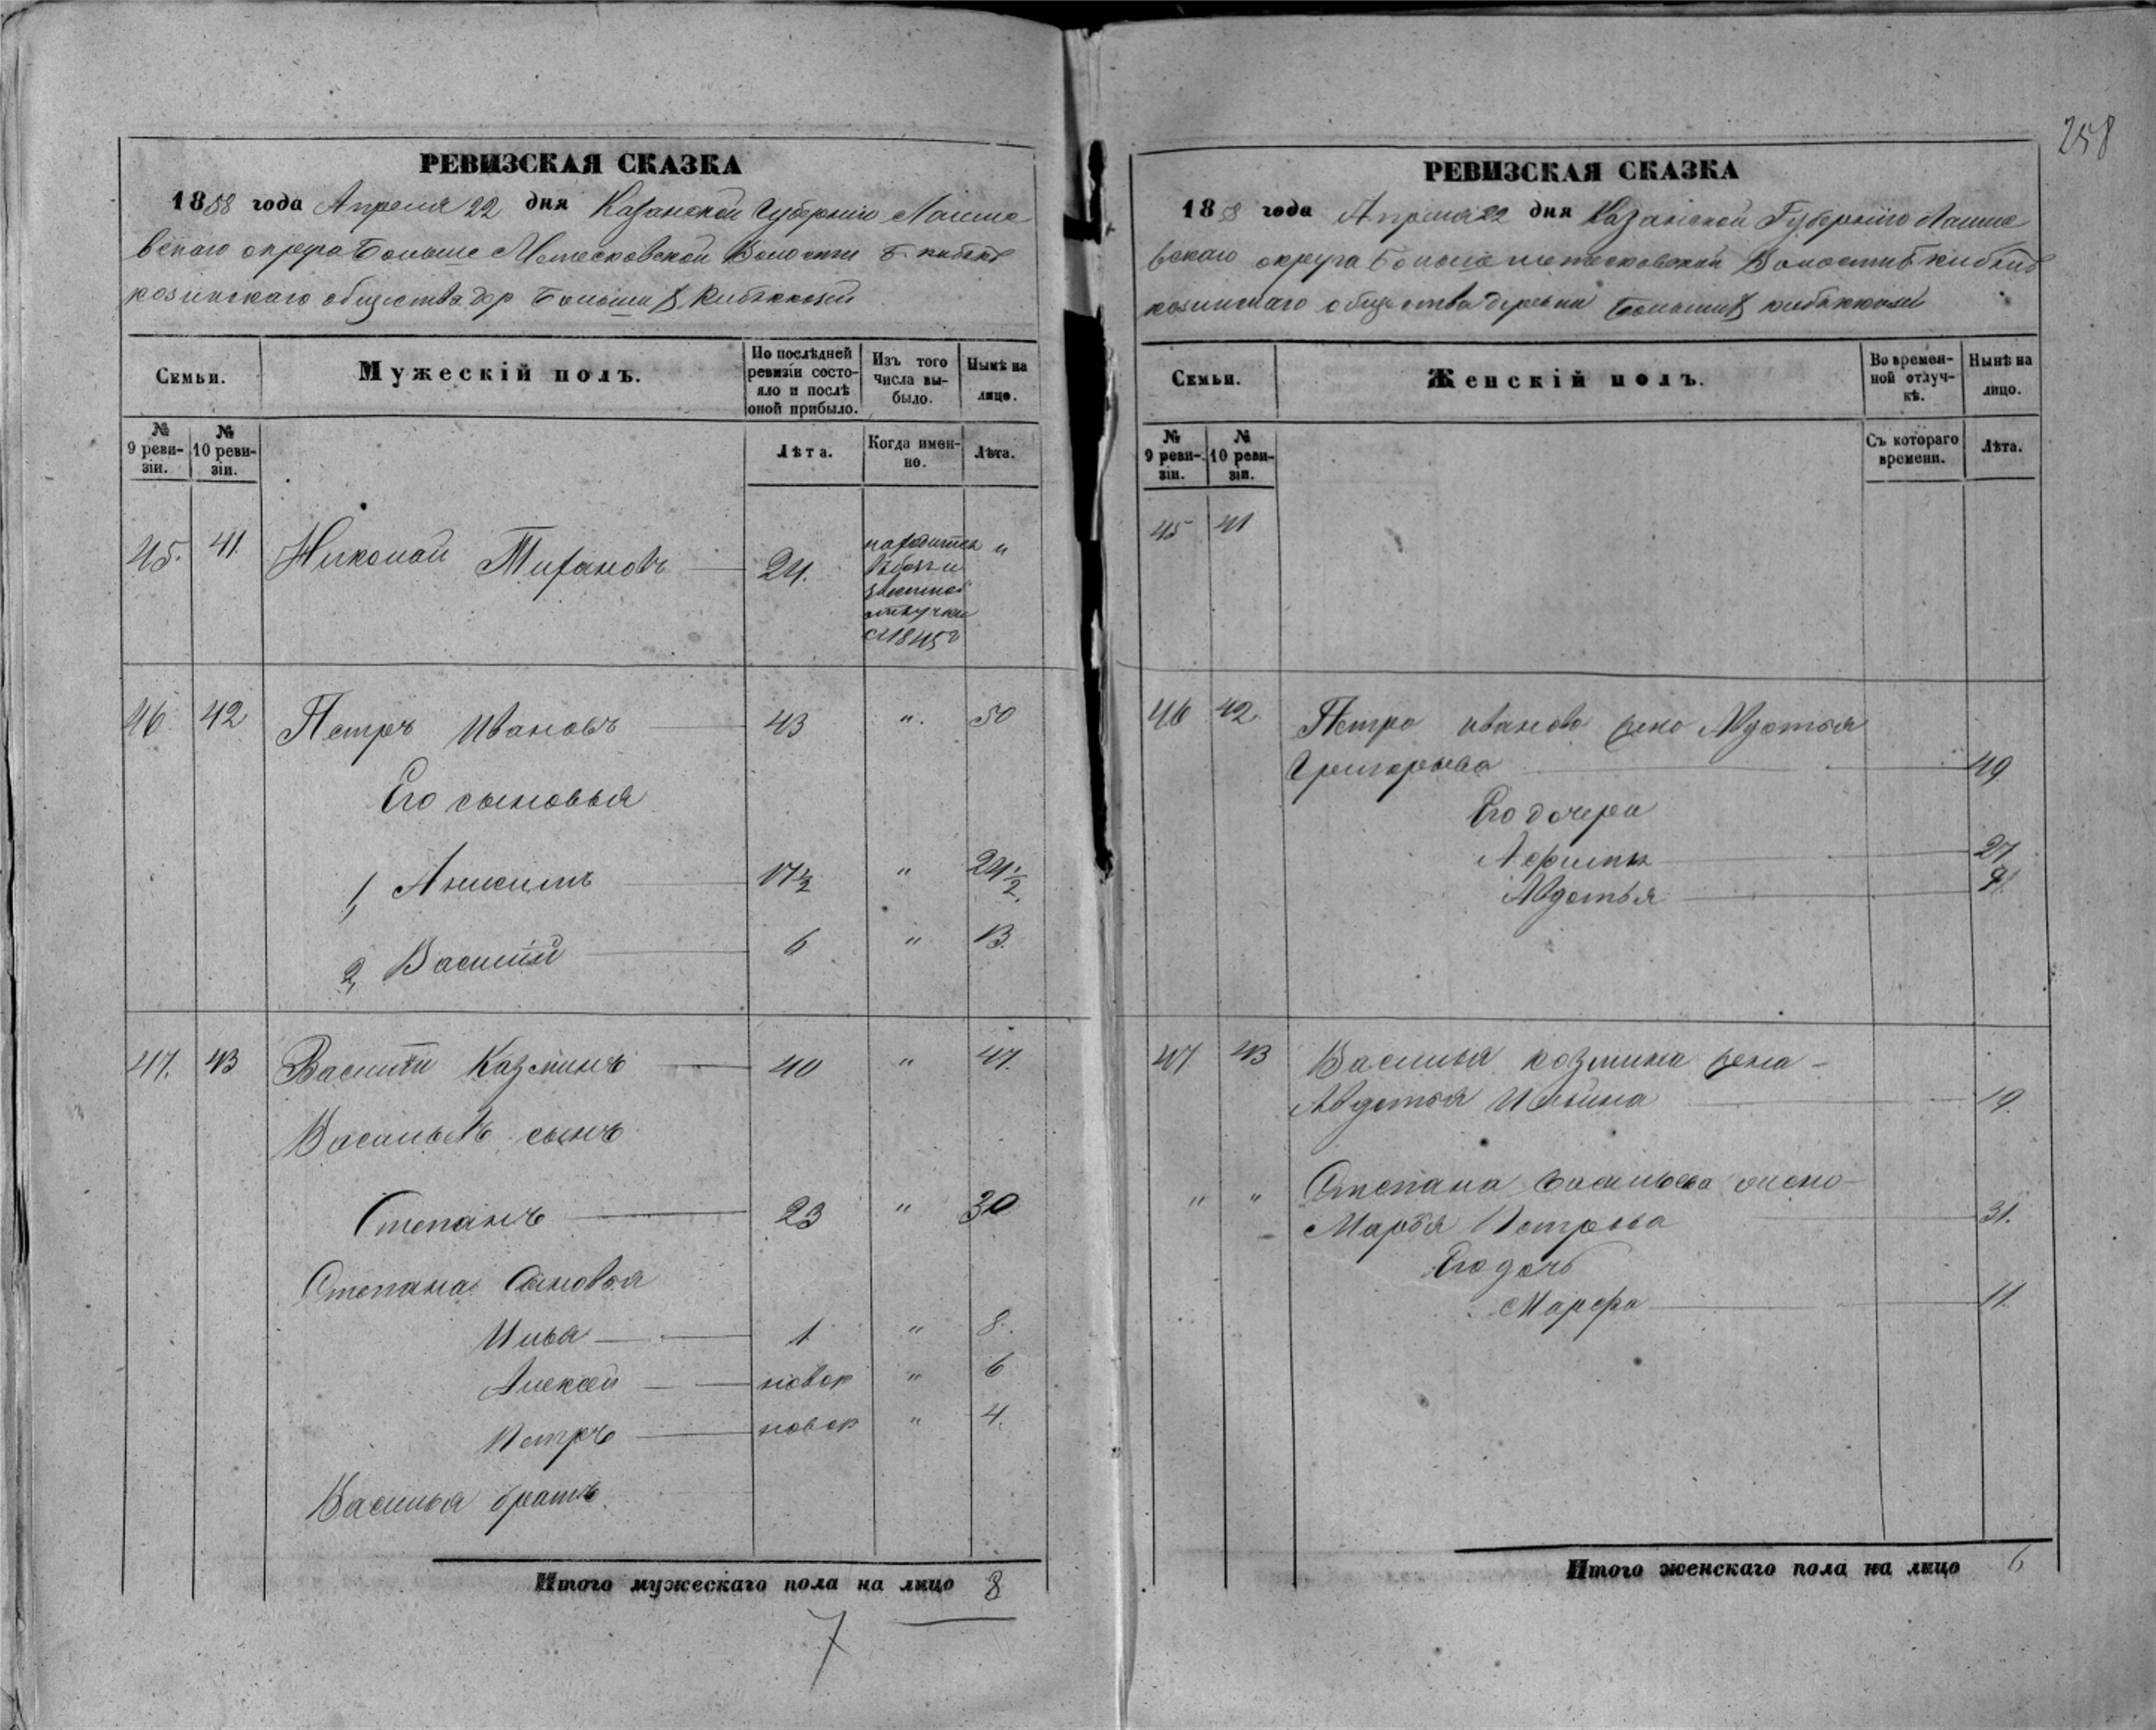 258
РЕВИЗСКАЯ СКАЗКА
1858 года Апреля 22 дня Казанской Губернiи Лаише
вскаго округа Больше Метесковской Волости Б. кибяк
козинскаго общества дер Большихъ Кибяккозей
Семьи.
Мужескiй полъ.
По послѣдней
ревизiи состо-
яло и послѣ
оной прибыло.
Изъ того
числа вы-
было.
Нынѣ на
лицо.
№
9 реви-
зiи.
№
10 реви-
зiи.
Лѣта.
Когда имен-
но.
Лѣта.
45. 41. Николай 24. находится "
отлучки
с 1845 г
46. 42 Петръ Ивановъ 43 ". 50
Его сыновья
1, Анисимъ 17½ " 24½.
2, Василiй 6 " 13.
47. 43 Василiй Казминъ 40 " 47.
Васильевъ сынъ
Степанъ 23 " 30
Степана Сыновья
Илья 1 " 8.
Алексей новор " 6
Петръ новор " 4.
Василья братъ
Итого мужескаго пола на лицо 8
7
РЕВИЗСКАЯ СКАЗКА
18 8 года Апреля 22 дня Казанской Губернiи Лаише
вскаго округа Больше метесковской Волости Б кибяк
козинскаго общества деревни Большихъ кибяккозей
Семьи.
Женскiй полъ.
Во времен-
ной отлуч-
кѣ.
Нынѣ на
лицо.
№
9 реви-
зiи.
№
10 реви-
зiи.
Съ котораго
времени.
Лѣта.
45 41
46 42. Петра иванова жена Авдотья
Григорьева 49
Его дочери
27
Авдотья
47 43 Василья козмина жена -
Авдотья Ильина 19.
" " Степана Васильева жена -
Марья Петрова 31.
Его дочь
Марфа 11.
Итого женскаго пола на лицо 6